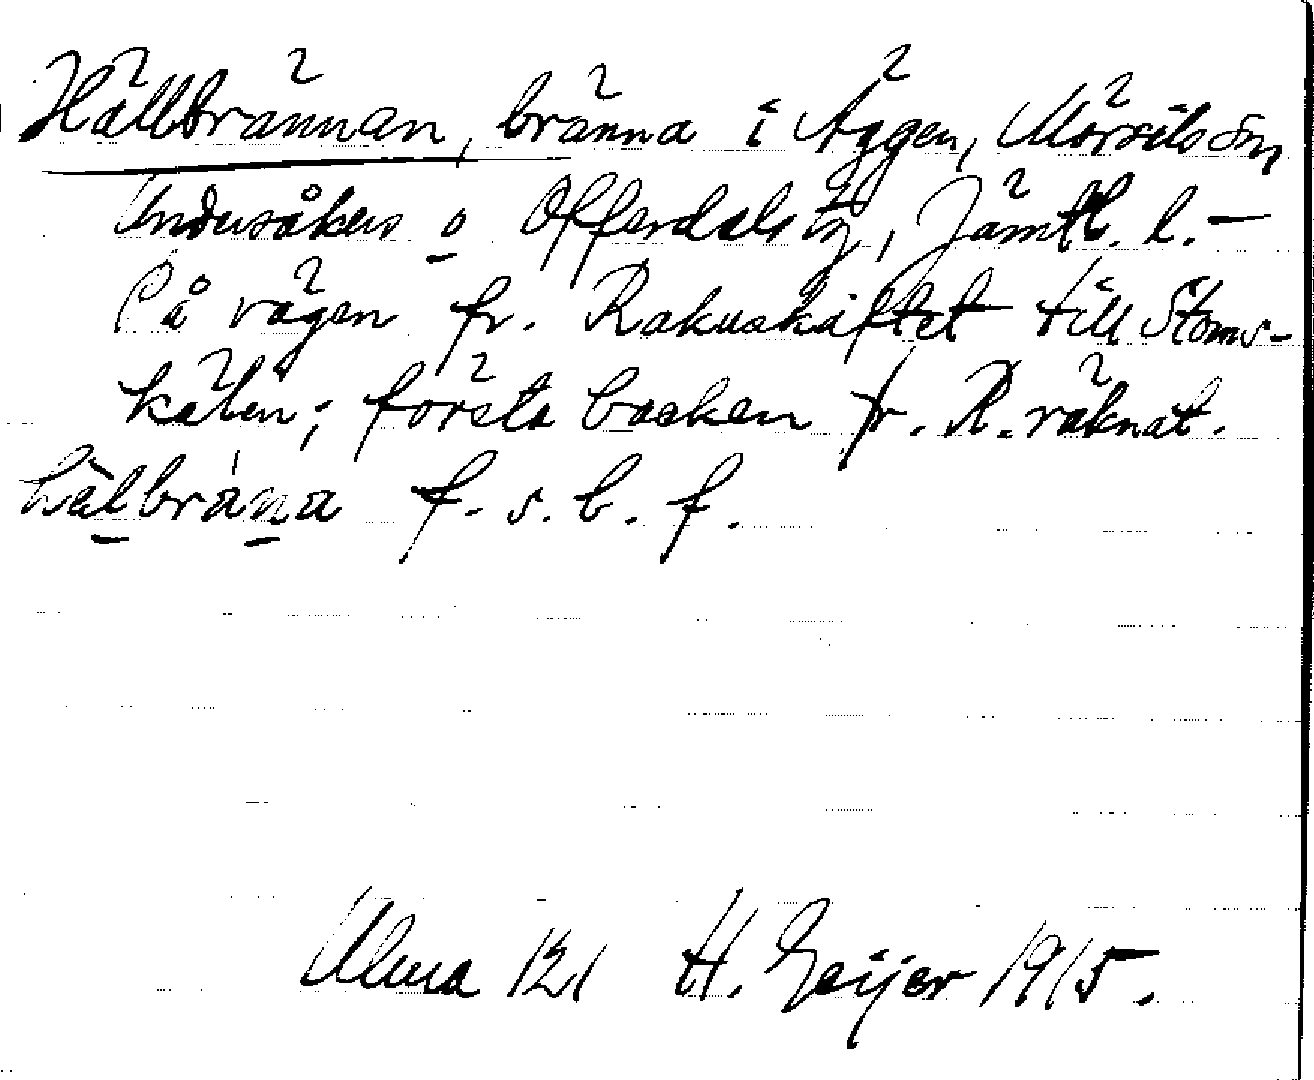 Hällbrännan, bränna i Äggen, Mörsils sn,
Undersåkers o Offerdals tg, Jämtl. l. —
På vägen fr. Rakuskäftet till Stoms-
kälen; första backen fr. R. räknat.
hälbräna f. s. b. f.
Ulma 121 H. Geijer 1915.